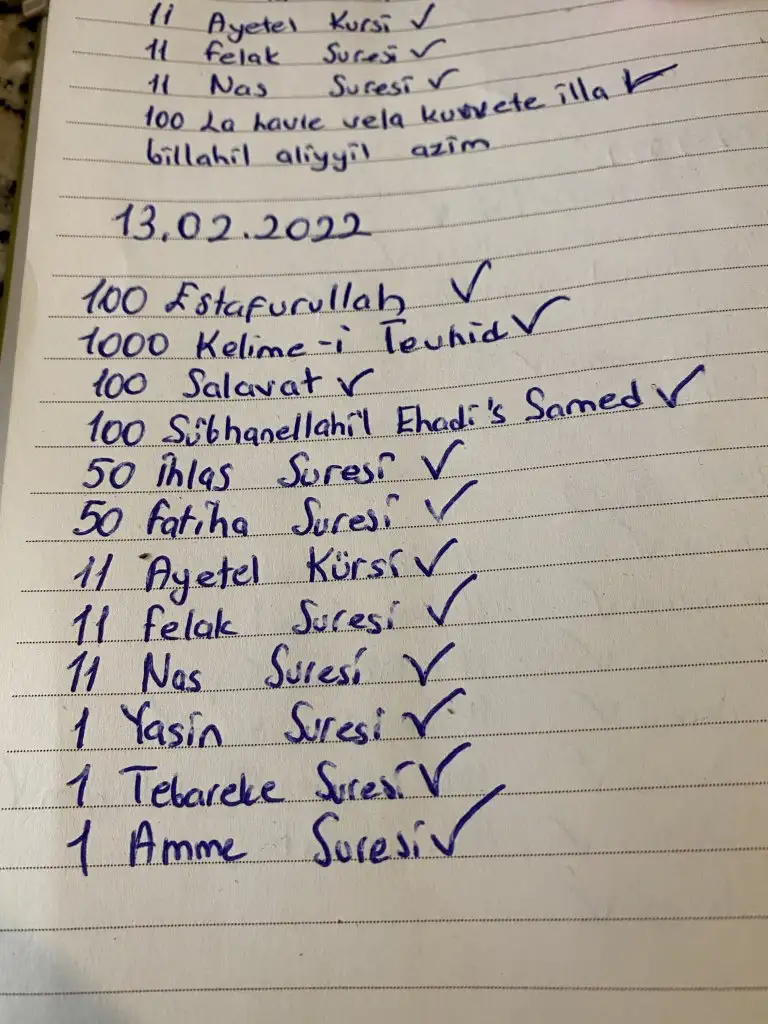 11 Ayetel Kursi ✓
11 Felak Suresi ✓
11 Nas Suresi ✓
100 La havle vela kuvvete illa ✓
billahil aliyyil azim
13.02.2022
100 Estafurullah ✓
1000 Kelime-i Tevhid ✓
100 Salavat ✓
100 Sübhanellahi'l Ehadi's Samed ✓
50 ihlas Suresi ✓
50 fatiha Suresi ✓
11 Ayetel Kürsi ✓
11 felak Suresi ✓
11 Nas Suresi ✓
1 Yasin Suresi ✓
1 Tebareke Suresi ✓
1 Amme Suresi ✓